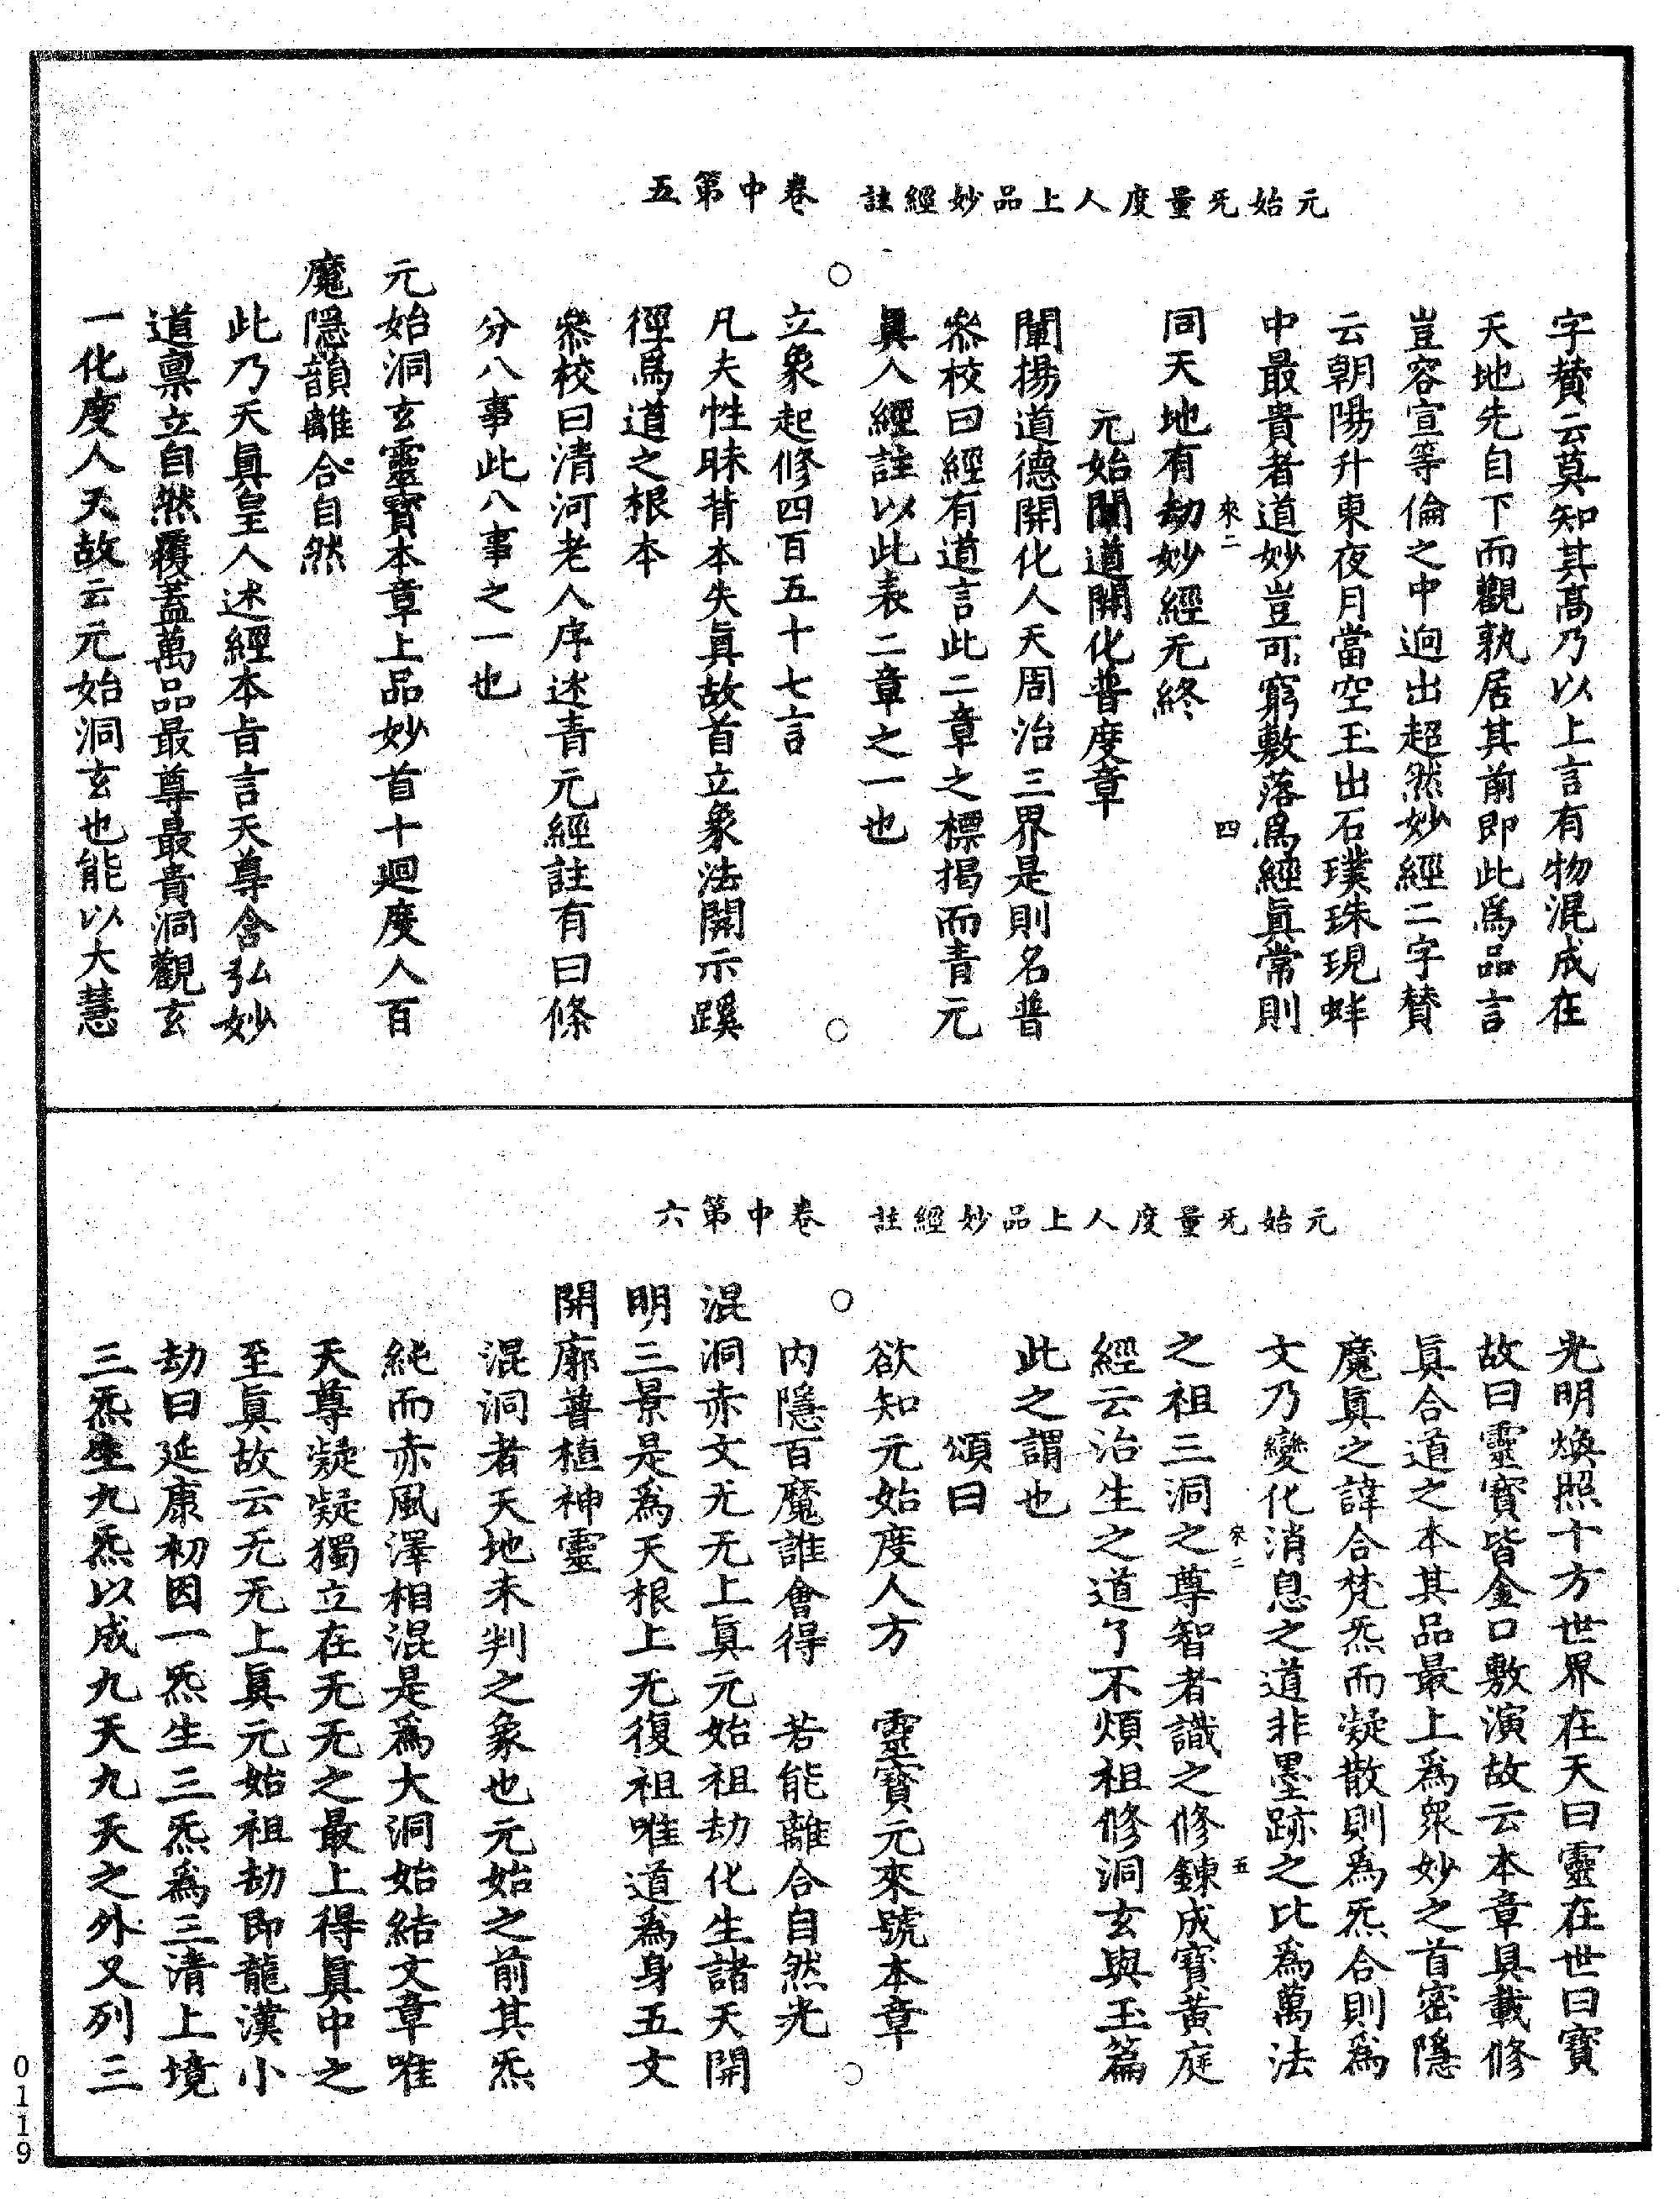 元始无量度人上品妙經註　卷中第五
字賛云莫知其高乃以上言有物混成在
天地先自下而觀孰居其前即此爲品言
豈容宣等倫之中逈出超然妙經二字賛
云朝陽升東夜月當空玉出石璞珠現蚌
中最貴者道妙豈可窮敷落爲經眞常則
來二　四
同天地有劫妙經无終
元始闡道開化普度章
闡揚道德開化人天周治三界是則名普
叅校曰經有道言此二章之標揭而青元
眞人經註以此表二章之一也
立象起修四百五十七言
凡夫性昧背本失眞故首立象法開示蹊
徑爲道之根本
叅校曰清河老人序述青元經註有曰條
分八事此八事之一也
元始洞玄靈寶本章上品妙首十廻度人百
魔隱韻離合自然
此乃天眞皇人述經本旨言天尊含弘妙
道禀立自然覆蓋萬品最尊最貴洞觀玄
一化度人天故云元始洞玄也能以大慧
元始无量度人上品妙經註　卷中第六
光明煥照十方世界在天曰靈在世曰寶
故曰靈寶皆金口敷演故云本章具載修
眞合道之本其品最上爲衆妙之首密隱
魔眞之諱合梵炁而凝散則爲炁合則爲
文乃變化消息之道非墨跡之比爲萬法
來二　五
之祖三洞之尊智者識之修鍊成寶黃庭
經云治生之道了不煩祖修洞玄與玉篇
此之謂也
頌曰
欲知元始度人方　靈寶元來號本章
内隱百魔誰會得　若能離合自然光
混洞赤文无无上眞元始祖劫化生諸天開
明三景是爲天根上无復祖唯道爲身五文
開廓普植神靈
混洞者天地未判之象也元始之前其炁
純而赤風澤相混是爲大洞始結文章唯
天尊凝凝獨立在无无之最上得眞中之
至眞故云无无上眞元始祖劫即龍漢小
劫曰延康初因一炁生三炁爲三清上境
三炁生九炁以成九天九天之外又列三
0119